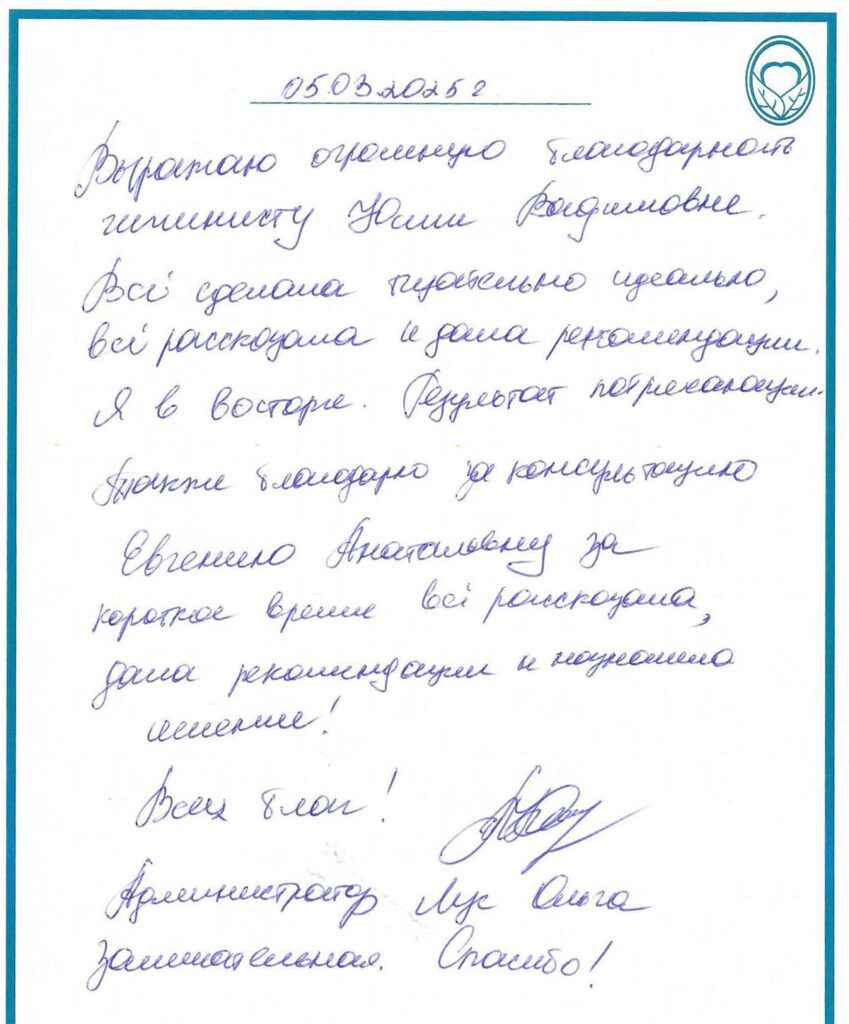 05.03.2025 г
Выражаю огромную благодарность
гигиенисту Юлии Вадимовне.
Всё сделала тщательно идеально,
всё рассказала и дала рекомендации.
Я в восторге. Результат потрясающий.
Также благодарю за консультацию
Евгению Анатольевну за
короткое время всё рассказала,
дала рекомендации и назначила
лечение!
Всех благ!
Администратор Лус Ольга
замечательная. Спасибо!